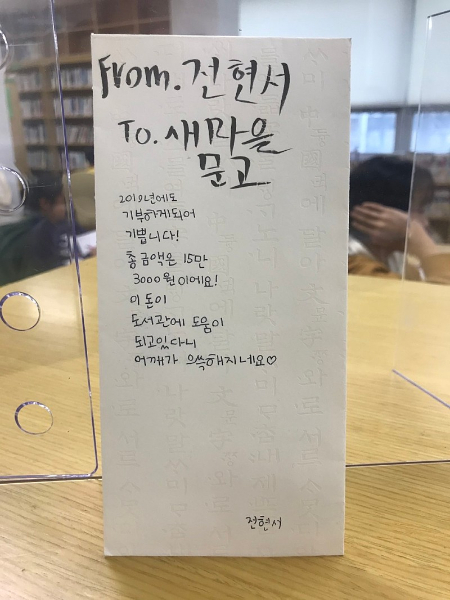 From. 전현서
To. 새마을
문고
2019년에도
기부하게되어
기쁩니다!
총금액은 15만
3000원이에요!
이 돈이
도서관에 도움이
되고있다니
어깨가 으쓱해지네요♡
전현서